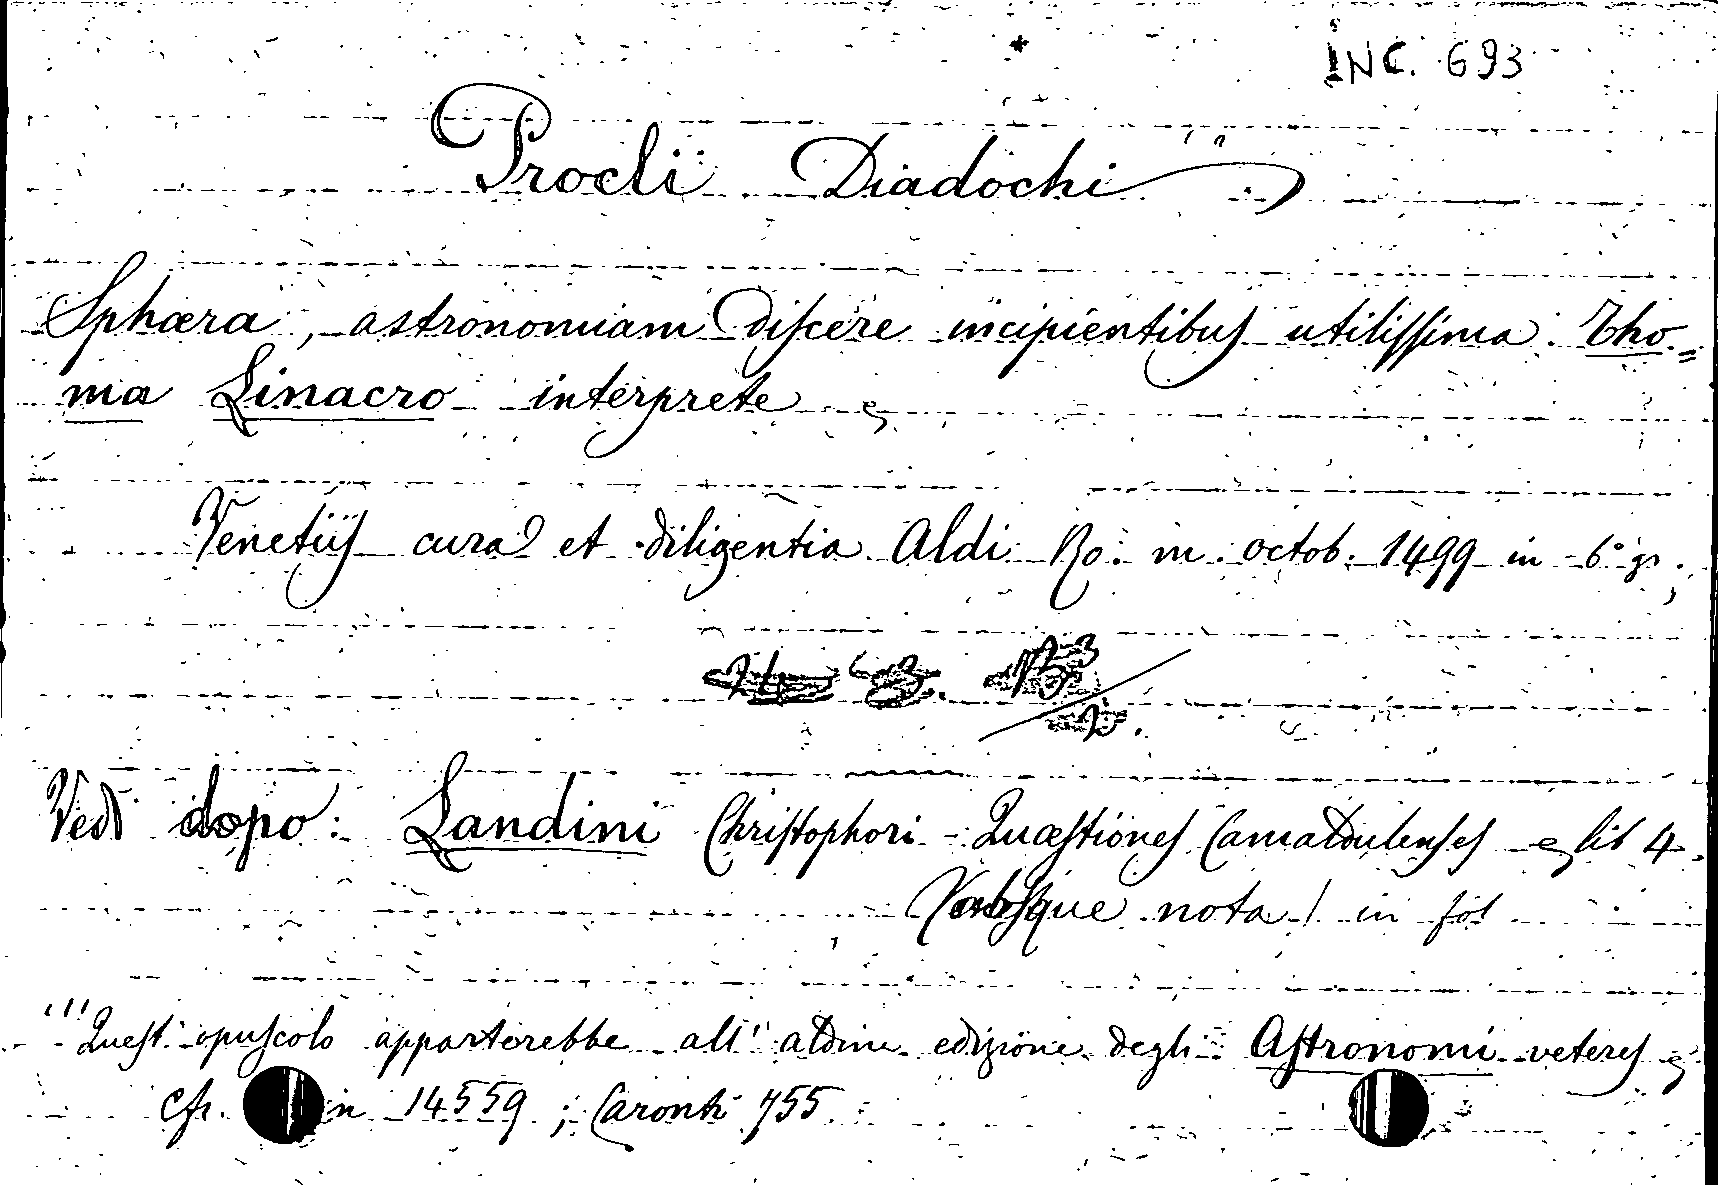 INC. 693
Procli Diadochi
Sphæra, astronomiam discere incipientibus utilissima. Tho=
ma Linacro interprete
Venetiis cura et diligentia Aldi Ro: m. octob. 1499 in - 6° gr.
Vedi dopo: Landini Christophori - Quæstiones Camaldulenses lib 4.
absque nota / in fol
Quest' opuscolo apparterebbe all' aldina edizione degli Astronomi veteres
cfr. 14559; Caronti 755